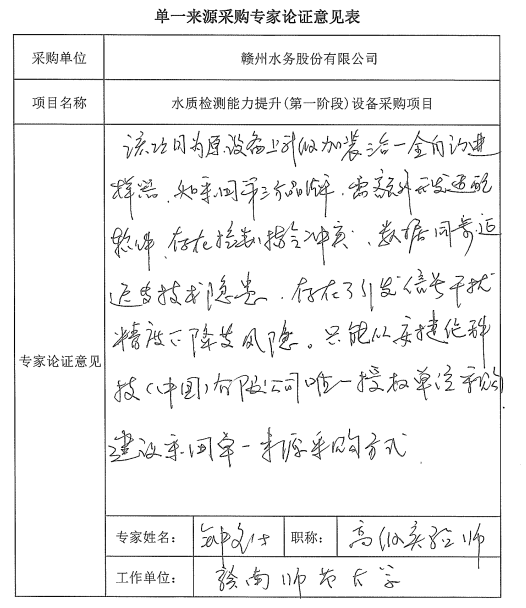 单一来源采购专家论证意见表
采购单位 赣州水务股份有限公司
项目名称 水质检测能力提升(第一阶段)设备采购项目
专家论证意见
该项目为原设备上升级加装三合一全自动进
样器,如采用第三方品牌,需额外开发适配
软件,存在控制指令冲突、数据同步延
迟等技术隐患,存在引发信号干扰
精度下降等风险。只能从安捷伦科
技(中国)有限公司唯一授权单位采购
建议采用单一来源采购方式
专家姓名: 职称: 高级实验师
工作单位: 赣南师范大学